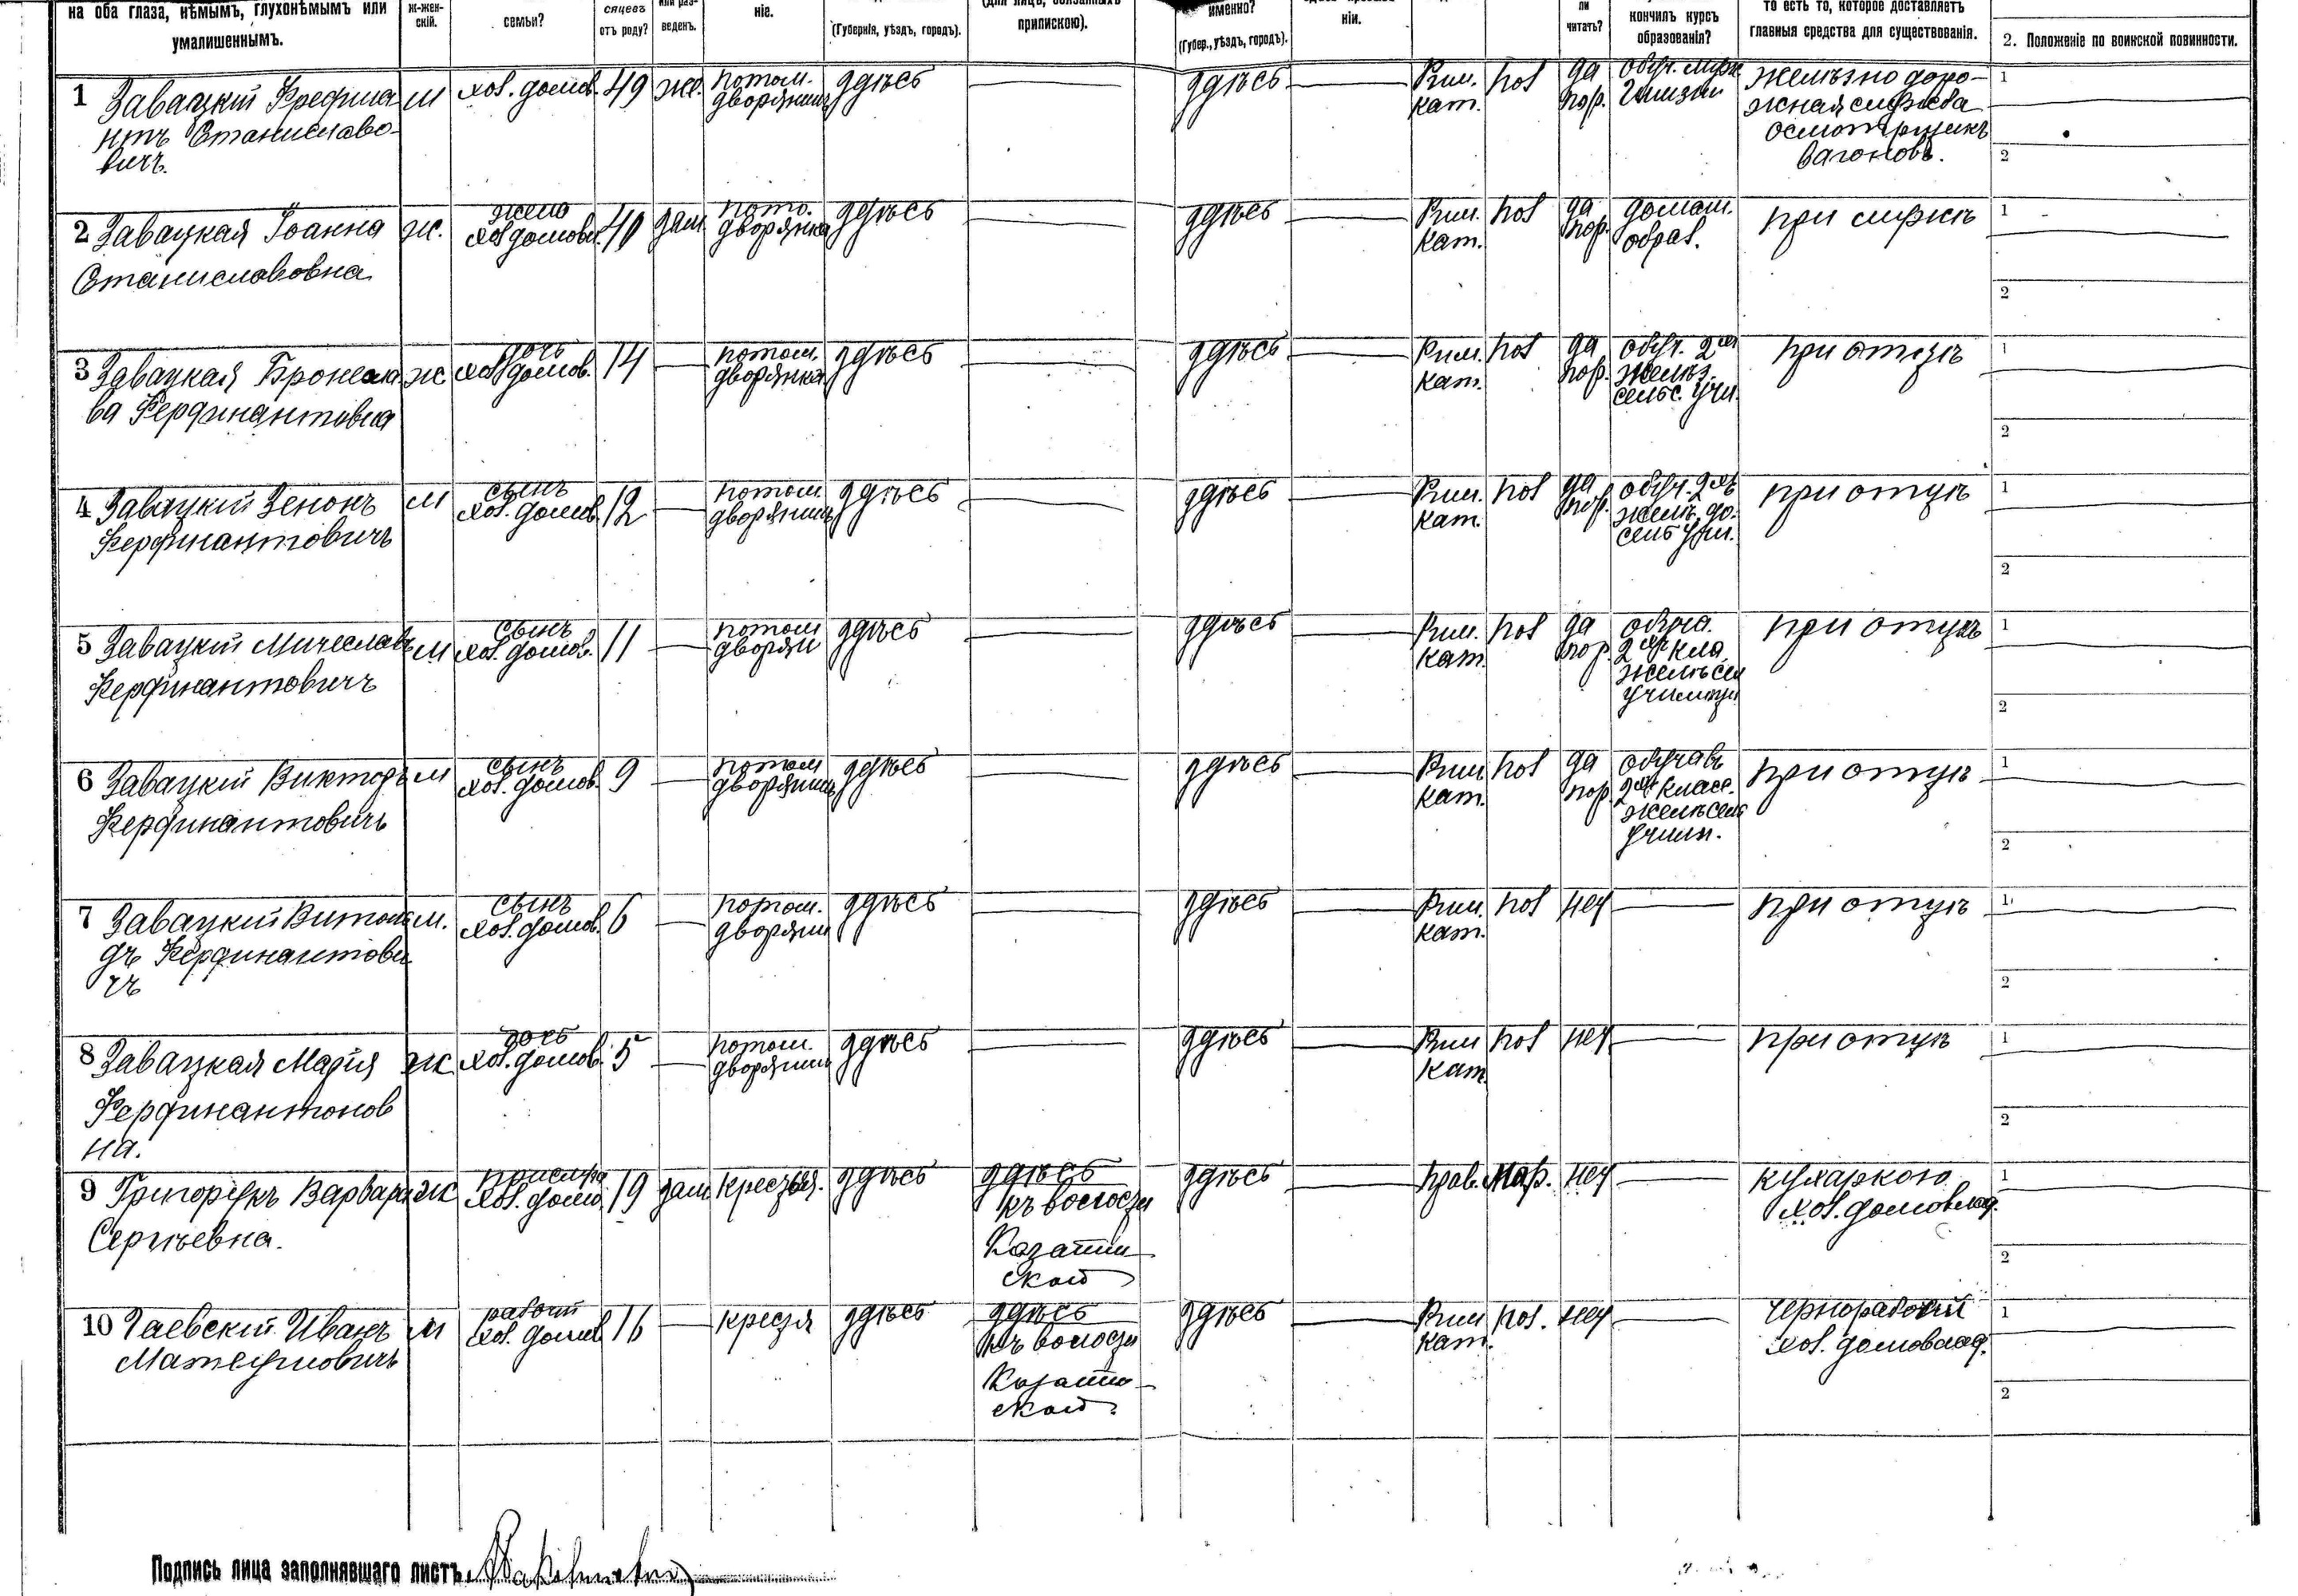 на оба глаза, нѣмымъ, глухонѣмымъ или
умалишеннымъ.
ж-жен-
скій.
семьи?
сяцевъ
отъ роду?
или раз-
веденъ.
ніе.
(Губернія, уѣздъ, городъ).
(для лицъ, обязанныхъ
припискою).
именно?
(Губер., уѣздъ, городъ).
ніи.
ли
читать?
кончилъ курсъ
образованія?
то есть то, которое доставляетъ
главныя средства для существованія.
2. Положеніе по воинской повинности.
1 Завацкій Фредина м хоз. домов. 49 ж. потом. здѣсь — здѣсь — Рим. пол да обуч. желѣзно доро- 1
нтъ Станиславо- дворянинъ кат. пор. жная служба
вичъ. осмотрщикъ
вагоновъ. 2
2 Завацкая Іоанна ж. жена 40 зам. пото. здѣсь — здѣсь — Рим. пол да домаш. при мужѣ 1
Станиславовна хоз домовл. дворянка кат. пор. образ. 2
3 Завацкая Бронесла ж дочь 14 — потом. здѣсь — здѣсь — Рим. пол да обуч. 2хъ при отцѣ 1
ва Фердинантовна хоз домов. дворянка кат. пор. желѣз.
сельс. учи. 2
4 Завацкій Зенонъ м сынъ 12 — потом. здѣсь — здѣсь — Рим. пол да обуч. 2хъ при отцѣ 1
Фердинантовичъ хоз. домов. дворянинъ кат. пор. желѣ. до.
сель учи. 2
5 Завацкій Мичеславъ м сынъ 11 — потом здѣсь — здѣсь — Рим. пол да при отцѣ 1
Фердинантовичъ хоз. домов. дворян кат. пор. 2хъ кла
желѣ сел
училищ 2
6 Завацкій Викторъ м сынъ 9 — потом здѣсь — здѣсь — Рим пол да обучавъ при отцѣ 1
Фердинантовичъ хоз. домов. дворянинъ кат. пор. 2хъ класс.
желѣ сель
учили. 2
7 Завацкій Витоль м. сынъ 6 — потом. здѣсь — здѣсь — Рим. пол нет — при отцѣ 1
дъ Фердинантови хоз. домов. дворян кат.
чъ 2
8 Завацкая Марія ж дочь 5 — потом. здѣсь — здѣсь — Рим пол нет — при отцѣ 1
Фердинантонов хоз. домов. дворянин кат.
на. 2
9 Григорукъ Варвара ж прислуга 19 зам крестья. здѣсь здѣсь здѣсь — прав. мар. нет — кухаркою 1
Сергѣевна. хоз. домо. къ волости хоз. домовлад.
Казатин
ской 2
10 Гаевскій Иванъ м рабочій 16 — здѣсь здѣсь здѣсь — Рим пол. нет — чернорабочій 1
хоз. домов къ волости кат. хоз. домовлад.
Казатин
ской 2
Подпись лица заполнявшаго листъ